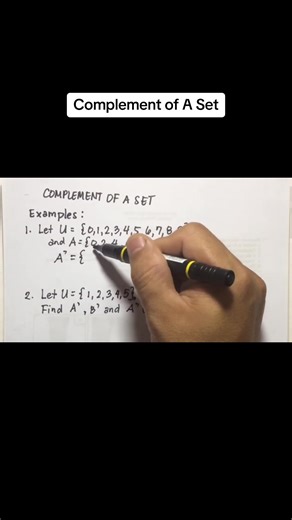 Complement of A Set
COMPLEMENT OF A SET
Examples:
1. Let U = {0,1,2,3,4,5,6,7,8,
and A = {0,2,4
A' = {
2. Let U = {1,2,3,4,5}
Find A', B' and A'